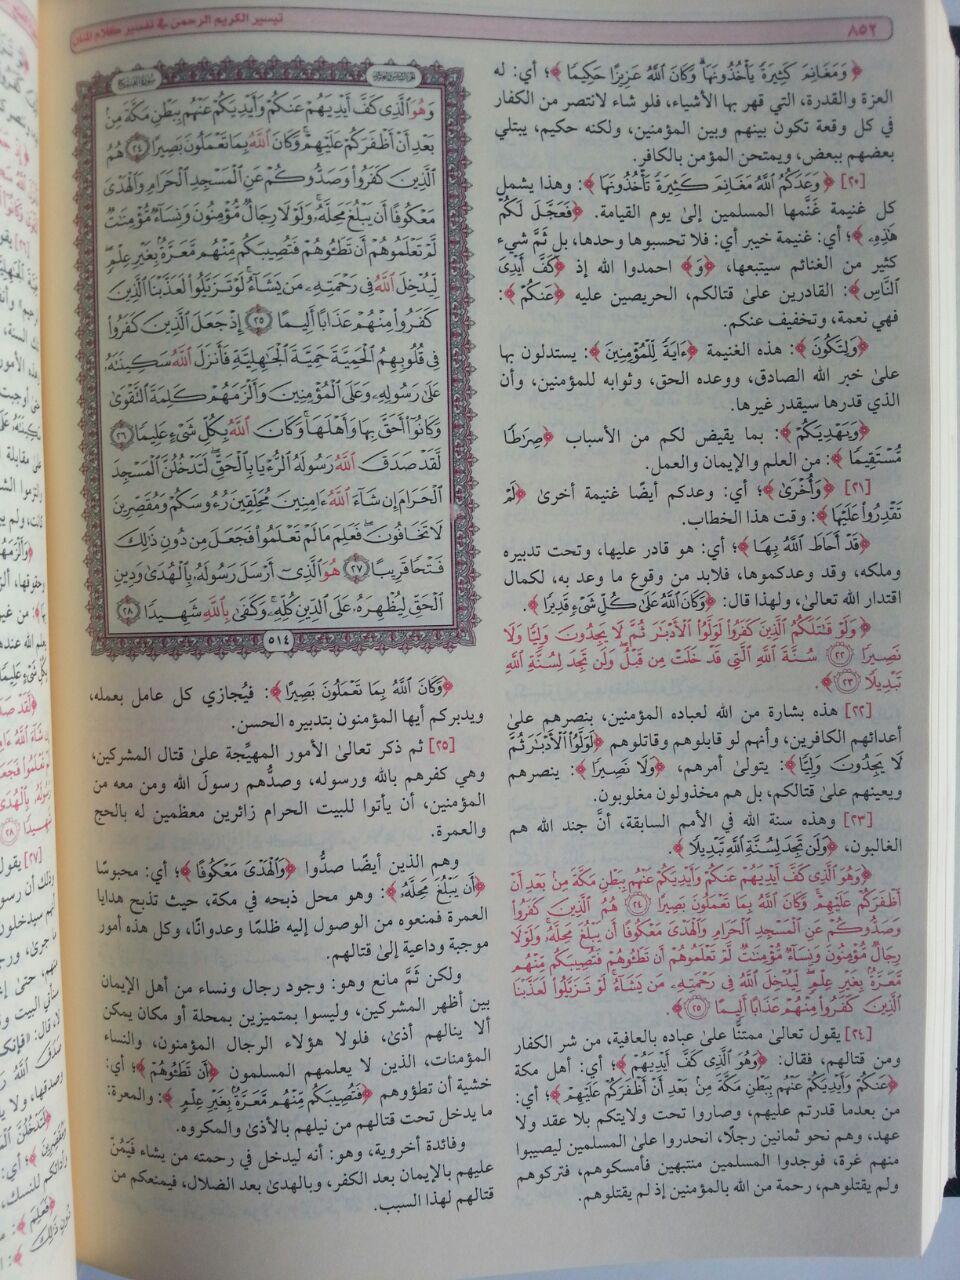 ٨٥٢
تيسير الكريم الرحمن في تفسير كلام المنان
﴿ وَمَغَانِمَ كَثِيرَةً يَأْخُذُونَهَا ۗ وَكَانَ اللَّهُ عَزِيزًا حَكِيمًا ﴾؛ أي: له
العزة والقدرة، التي قهر بها الأشياء، فلو شاء لانتصر من الكفار
في كل وقعة تكون بينهم وبين المؤمنين، ولكنه حكيم، يبتلي
بعضهم ببعض، ويمتحن المؤمن بالكافر.
[٢٠] ﴿ وَعَدَكُمُ اللَّهُ مَغَانِمَ كَثِيرَةً تَأْخُذُونَهَا ﴾: وهذا يشمل
كل غنيمة غَنَّمها المسلمين إلىٰ يوم القيامة. ﴿فَعَجَّلَ لَكُمْ
هَٰذِهِ ﴾؛ أي: غنيمة خيبر أي: فلا تحسبوها وحدها، بل ثَمَّ شيء
كثير من الغنائم سيتبعها، ﴿وَ﴾ احمدوا الله إذ ﴿كَفَّ أَيْدِيَ
النَّاسِ﴾: القادرين علىٰ قتالكم، الحريصين عليه ﴿عَنكُمْ﴾:
فهي نعمة، وتخفيف عنكم.
﴿وَلِتَكُونَ﴾: هذه الغنيمة ﴿ءَايَةً لِّلْمُؤْمِنِينَ﴾: يستدلون بها
علىٰ خبر الله الصادق، ووعده الحق، وثوابه للمؤمنين، وأن
الذي قدرها سيقدر غيرها.
﴿وَيَهْدِيَكُمْ﴾: بما يقيض لكم من الأسباب ﴿صِرَاطًا
مُّسْتَقِيمًا ﴾: من العلم والإيمان والعمل.
[٢١] ﴿ وَأُخْرَىٰ﴾؛ أي: وعدكم أيضًا غنيمة أخرىٰ ﴿لَمْ
تَقْدِرُوا عَلَيْهَا﴾: وقت هذا الخطاب.
﴿قَدْ أَحَاطَ اللَّهُ بِهَا ﴾؛ أي: هو قادر عليها، وتحت تدبيره
وملكه، وقد وعدكموها، فلابد من وقوع ما وعد به، لكمال
اقتدار الله تعالىٰ، ولهذا قال: ﴿وَكَانَ اللَّهُ عَلَىٰ كُلِّ شَيْءٍ قَدِيرًا ﴾.
﴿ وَلَوْ قَٰتَلَكُمُ الَّذِينَ كَفَرُوا لَوَلَّوُا الْأَدْبَٰرَ ثُمَّ لَا يَجِدُونَ وَلِيًّا وَلَا
نَصِيرًا ٢٢ سُنَّةَ اللَّهِ الَّتِي قَدْ خَلَتْ مِن قَبْلُ ۖ وَلَن تَجِدَ لِسُنَّةِ اللَّهِ
تَبْدِيلًا ٢٣ ﴾.
[٢٢] هذه بشارة من الله لعباده المؤمنين، بنصرهم علىٰ
أعدائهم الكافرين، وأنهم لو قابلوهم وقاتلوهم ﴿لَوَلَّوُا الْأَدْبَٰرَ ثُمَّ
لَا يَجِدُونَ وَلِيًّا﴾: يتولىٰ أمرهم، ﴿وَلَا نَصِيرًا ﴾: ينصرهم
ويعينهم علىٰ قتالكم، بل هم مخذولون مغلوبون.
[٢٣] وهذه سنة الله في الأمم السابقة، أنَّ جند الله هم
الغالبون، ﴿وَلَن تَجِدَ لِسُنَّةِ اللَّهِ تَبْدِيلًا ﴾.
﴿وَهُوَ الَّذِي كَفَّ أَيْدِيَهُمْ عَنكُمْ وَأَيْدِيَكُمْ عَنْهُم بِبَطْنِ مَكَّةَ مِن بَعْدِ أَنْ
أَظْفَرَكُمْ عَلَيْهِمْ ۚ وَكَانَ اللَّهُ بِمَا تَعْمَلُونَ بَصِيرًا ٢٤ هُمُ الَّذِينَ كَفَرُوا
وَصَدُّوكُمْ عَنِ الْمَسْجِدِ الْحَرَامِ وَالْهَدْيَ مَعْكُوفًا أَن يَبْلُغَ مَحِلَّهُ ۚ وَلَوْلَا
رِجَالٌ مُّؤْمِنُونَ وَنِسَاءٌ مُّؤْمِنَٰتٌ لَّمْ تَعْلَمُوهُمْ أَن تَطَـُٔوهُمْ فَتُصِيبَكُم مِّنْهُم
مَّعَرَّةٌ بِغَيْرِ عِلْمٍ ۖ لِّيُدْخِلَ اللَّهُ فِي رَحْمَتِهِ مَن يَشَاءُ ۚ لَوْ تَزَيَّلُوا لَعَذَّبْنَا
الَّذِينَ كَفَرُوا مِنْهُمْ عَذَابًا أَلِيمًا ٢٥ ﴾.
[٢٤] يقول تعالىٰ ممتنًّا علىٰ عباده بالعافية، من شر الكفار
ومن قتالهم، فقال: ﴿وَهُوَ الَّذِي كَفَّ أَيْدِيَهُمْ﴾؛ أي: أهل مكة
﴿عَنكُمْ وَأَيْدِيَكُمْ عَنْهُم بِبَطْنِ مَكَّةَ مِن بَعْدِ أَنْ أَظْفَرَكُمْ عَلَيْهِمْ ﴾؛ أي:
من بعدما قدرتم عليهم، وصاروا تحت ولايتكم بلا عقد ولا
عهد، وهم نحو ثمانين رجلًا، انحدروا علىٰ المسلمين ليصيبوا
منهم غرة، فوجدوا المسلمين منتبهين فأمسكوهم، فتركوهم
ولم يقتلوهم، رحمة من الله بالمؤمنين إذ لم يقتلوهم.
سُورَةُ الفَتْحِ
وَهُوَ الَّذِي كَفَّ أَيْدِيَهُمْ عَنكُمْ وَأَيْدِيَكُمْ عَنْهُم بِبَطْنِ مَكَّةَ مِن
بَعْدِ أَنْ أَظْفَرَكُمْ عَلَيْهِمْ ۚ وَكَانَ اللَّهُ بِمَا تَعْمَلُونَ بَصِيرًا ٢٤ هُمُ
الَّذِينَ كَفَرُوا وَصَدُّوكُمْ عَنِ الْمَسْجِدِ الْحَرَامِ وَالْهَدْيَ
مَعْكُوفًا أَن يَبْلُغَ مَحِلَّهُ ۚ وَلَوْلَا رِجَالٌ مُّؤْمِنُونَ وَنِسَاءٌ مُّؤْمِنَٰتٌ
لَّمْ تَعْلَمُوهُمْ أَن تَطَـُٔوهُمْ فَتُصِيبَكُم مِّنْهُم مَّعَرَّةٌ بِغَيْرِ عِلْمٍ ۖ
لِّيُدْخِلَ اللَّهُ فِي رَحْمَتِهِ مَن يَشَاءُ ۚ لَوْ تَزَيَّلُوا لَعَذَّبْنَا الَّذِينَ
كَفَرُوا مِنْهُمْ عَذَابًا أَلِيمًا ٢٥ إِذْ جَعَلَ الَّذِينَ كَفَرُوا
فِي قُلُوبِهِمُ الْحَمِيَّةَ حَمِيَّةَ الْجَٰهِلِيَّةِ فَأَنزَلَ اللَّهُ سَكِينَتَهُ
عَلَىٰ رَسُولِهِ وَعَلَى الْمُؤْمِنِينَ وَأَلْزَمَهُمْ كَلِمَةَ التَّقْوَىٰ
وَكَانُوا أَحَقَّ بِهَا وَأَهْلَهَا ۚ وَكَانَ اللَّهُ بِكُلِّ شَيْءٍ عَلِيمًا ٢٦
لَّقَدْ صَدَقَ اللَّهُ رَسُولَهُ الرُّءْيَا بِالْحَقِّ ۖ لَتَدْخُلُنَّ الْمَسْجِدَ
الْحَرَامَ إِن شَاءَ اللَّهُ ءَامِنِينَ مُحَلِّقِينَ رُءُوسَكُمْ وَمُقَصِّرِينَ
لَا تَخَافُونَ ۖ فَعَلِمَ مَا لَمْ تَعْلَمُوا فَجَعَلَ مِن دُونِ ذَٰلِكَ
فَتْحًا قَرِيبًا ٢٧ هُوَ الَّذِي أَرْسَلَ رَسُولَهُ بِالْهُدَىٰ وَدِينِ
الْحَقِّ لِيُظْهِرَهُ عَلَى الدِّينِ كُلِّهِ ۚ وَكَفَىٰ بِاللَّهِ شَهِيدًا ٢٨
٥١٤
﴿وَكَانَ اللَّهُ بِمَا تَعْمَلُونَ بَصِيرًا ﴾: فيُجازي كل عامل بعمله،
ويدبركم أيها المؤمنون بتدبيره الحسن.
[٢٥] ثم ذكر تعالىٰ الأمور المهيِّجة علىٰ قتال المشركين،
وهي كفرهم بالله ورسوله، وصدُّهم رسولَ الله ومن معه من
المؤمنين، أن يأتوا للبيت الحرام زائرين معظمين له بالحج
والعمرة.
وهم الذين أيضًا صدُّوا ﴿وَالْهَدْيَ مَعْكُوفًا ﴾؛ أي: محبوسًا
﴿أَن يَبْلُغَ مَحِلَّهُ﴾: وهو محل ذبحه في مكة، حيث تذبح هدايا
العمرة فمنعوه من الوصول إليه ظلمًا وعدوانًا، وكل هذه أمور
موجبة وداعية إلىٰ قتالهم.
ولكن ثَمَّ مانع وهو: وجود رجال ونساء من أهل الإيمان
بين أظهر المشركين، وليسوا بمتميزين بمحلة أو مكان يمكن
ألا ينالهم أذىٰ، فلولا هؤلاء الرجال المؤمنون، والنساء
المؤمنات، الذين لا يعلمهم المسلمون ﴿أَن تَطَـُٔوهُمْ ﴾؛ أي:
خشية أن تطؤوهم ﴿فَتُصِيبَكُم مِّنْهُم مَّعَرَّةٌ بِغَيْرِ عِلْمٍ ﴾: والمعرة:
ما يدخل تحت قتالهم من نيلهم بالأذىٰ والمكروه.
وفائدة أخروية، وهو: أنه ليدخل في رحمته من يشاء فَيَمُنّ
عليهم بالإيمان بعد الكفر، وبالهدىٰ بعد الضلال، فيمنعكم من
قتالهم لهذا السبب.